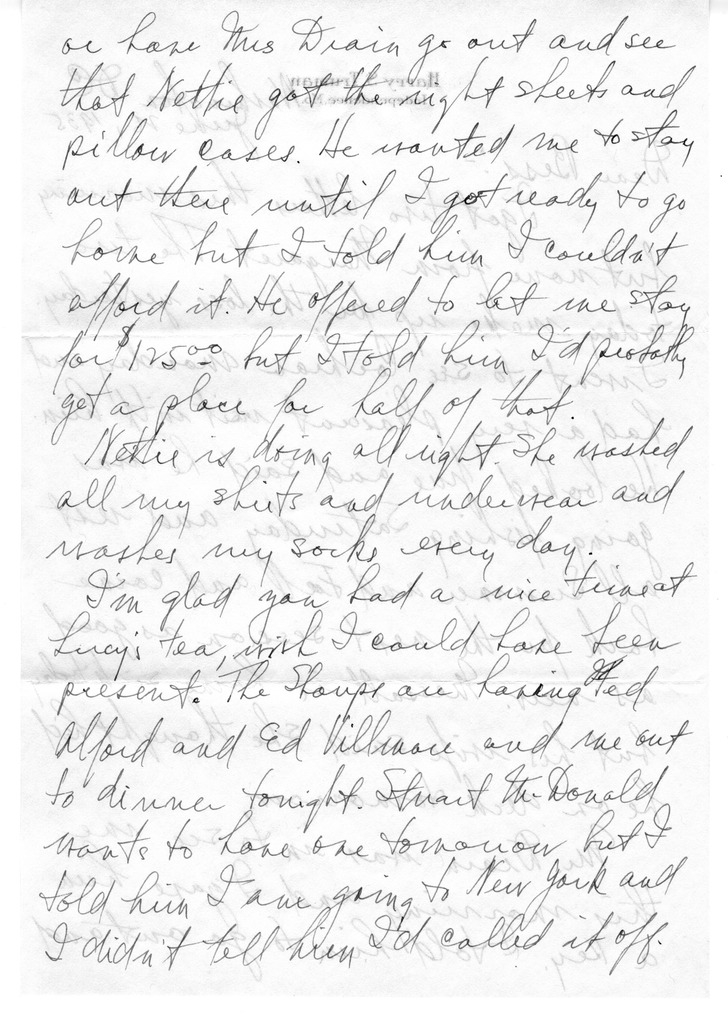 or have Mrs Drain go out and see
that Nettie got the right sheets and
pillow cases. He wanted me to stay
out there until I got ready to go
home but I told him I couldn't
afford it. He offered to let me stay
for $125 00 but I told him I'd probably
get a place for half of that.
Nettie is doing all right. She washed
all my shirts and underwear and
washes my socks every day.
I'm glad you had a nice time at
Lucy's tea, wish I could have been
present. The Shoups are having Ted
Alford and Ed Villmare and me out
to dinner tonight. Stuart McDonald
wants to have one tomorrow but I
told him I am going to New York and
I didn't tell him I'd called it off.